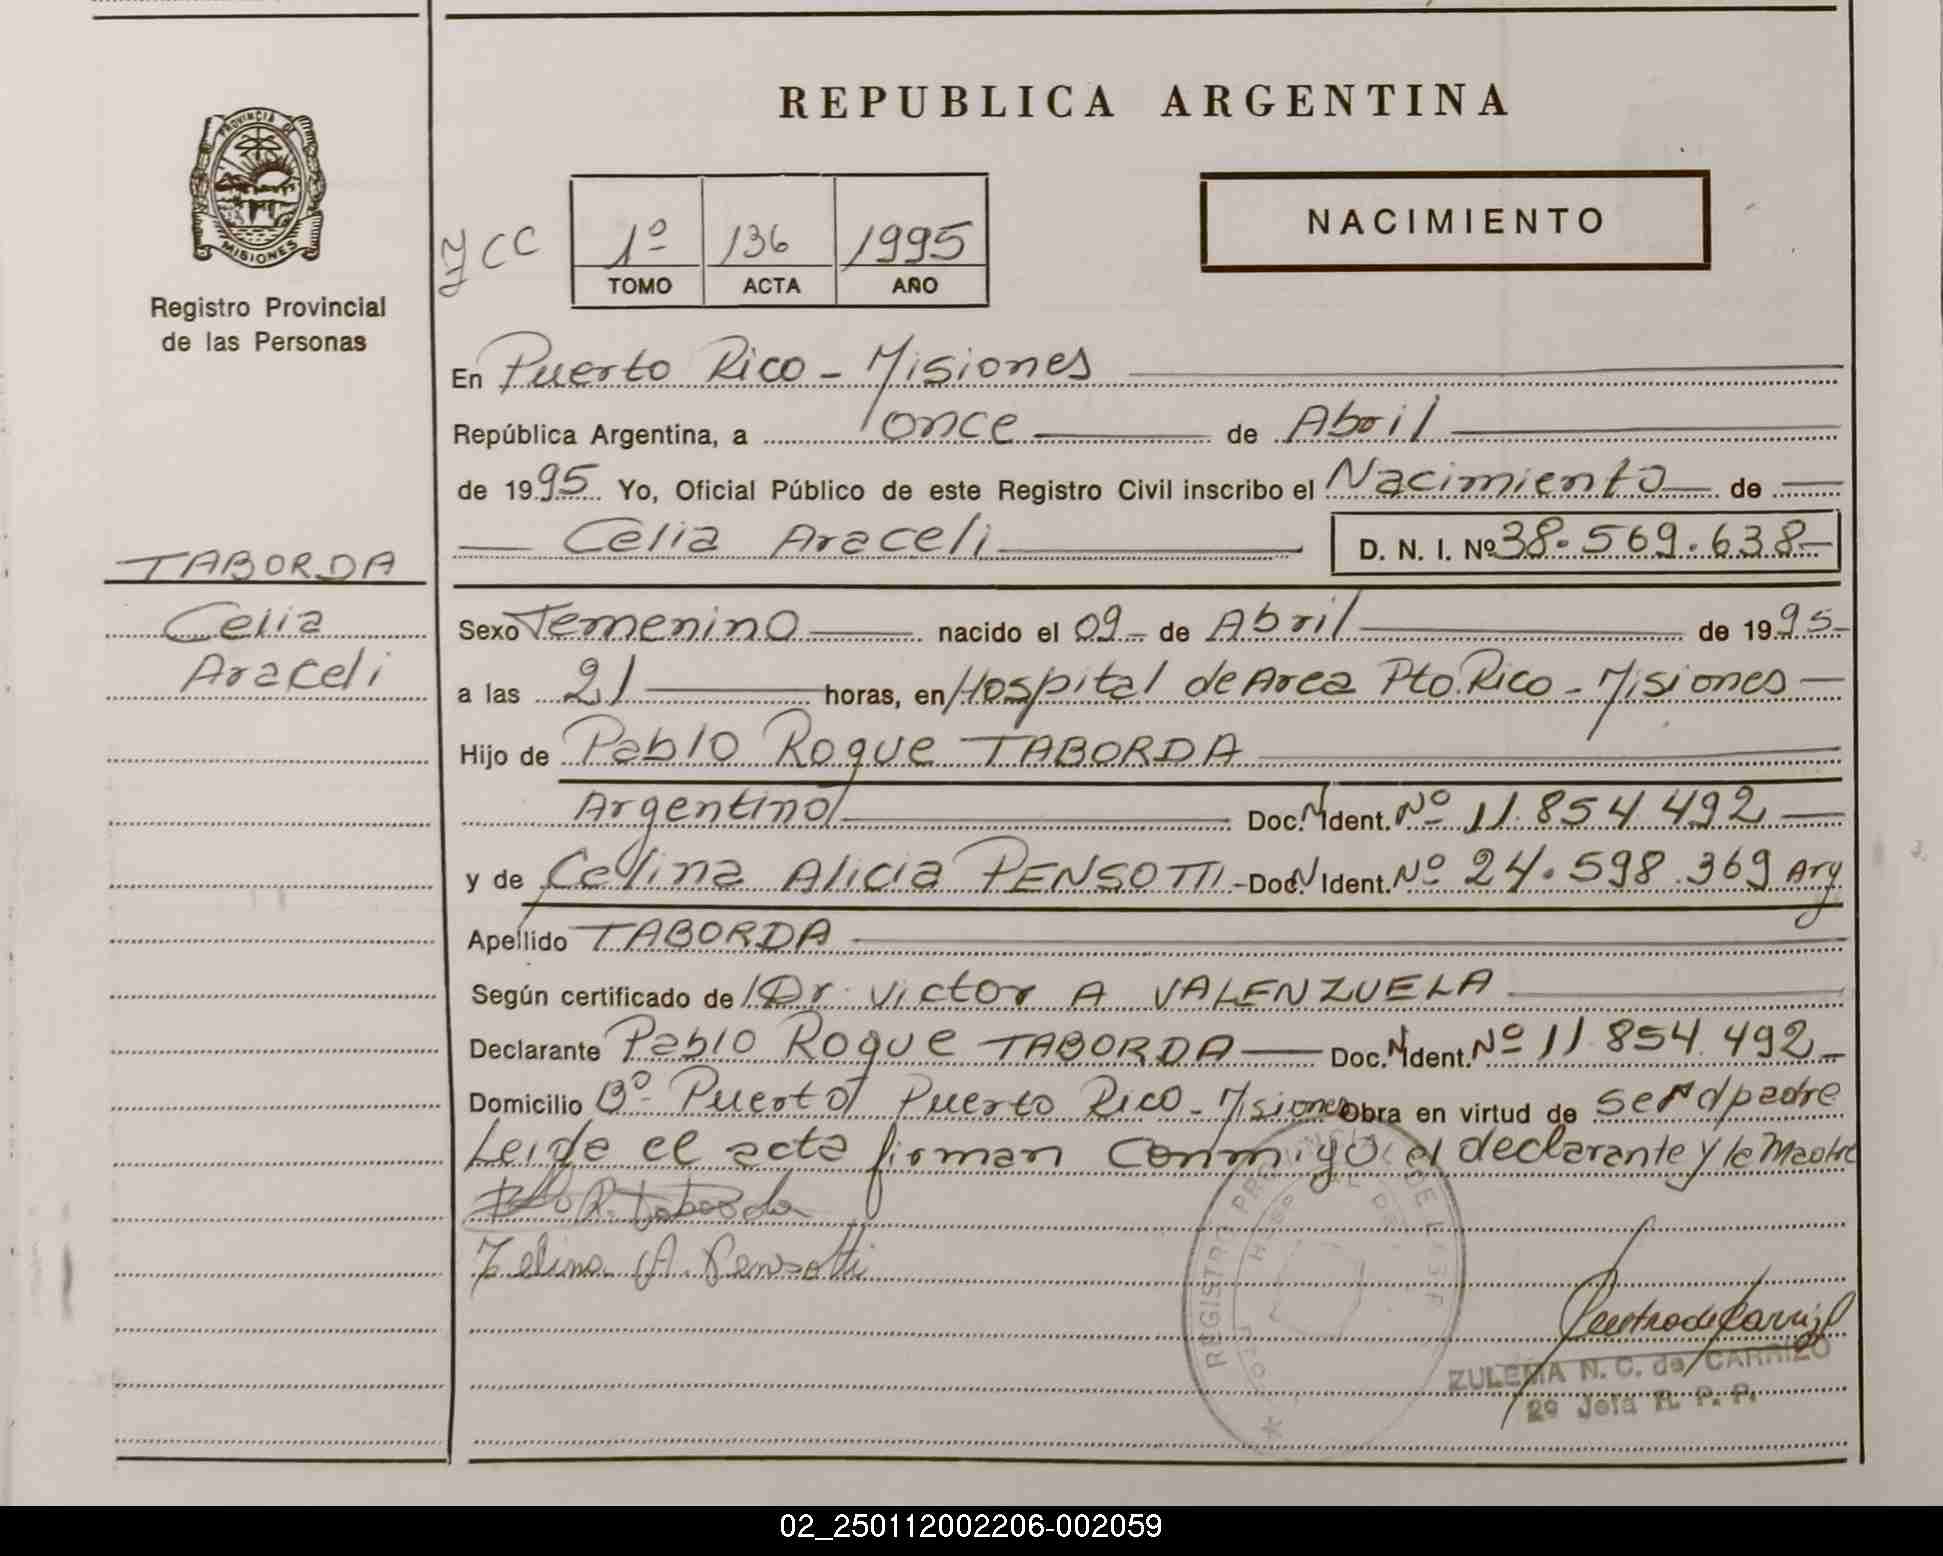 REPUBLICA ARGENTINA
PROVINCIA DE
MISIONES
Registro Provincial
de las Personas
JCC
1º 136 1995
TOMO ACTA AÑO
NACIMIENTO
En Puerto Rico - Misiones
República Argentina, a once de Abril
de 1995 Yo, Oficial Público de este Registro Civil inscribo el Nacimiento de
Celia Araceli D. N. I. Nº 38.569.638
TABORDA
Celia
Araceli
Sexo Femenino nacido el 09 de Abril de 1995
a las 21 horas, en Hospital de Area Pto. Rico - Misiones
Hijo de Pablo Roque TABORDA
Argentino Doc. N Ident. Nº 11.854.492
y de Celina Alicia PENSOTTI - Doc. N Ident. Nº 24.598.369 Arg
Apellido TABORDA
Según certificado de Dr. Victor A VALENZUELA
Declarante Pablo Roque TABORDA Doc. N Ident. Nº 11.854.492
Domicilio Bº Puerto Puerto Rico - Misiones Obra en virtud de ser padre
Leida el acta firman conmigo el declarante y la Madre
R. Taborda
Celina A. Pensotti
REGISTRO
ZULEMA N. C. de CARRIZO
2º Jefa R. P. P.
02_250112002206-002059